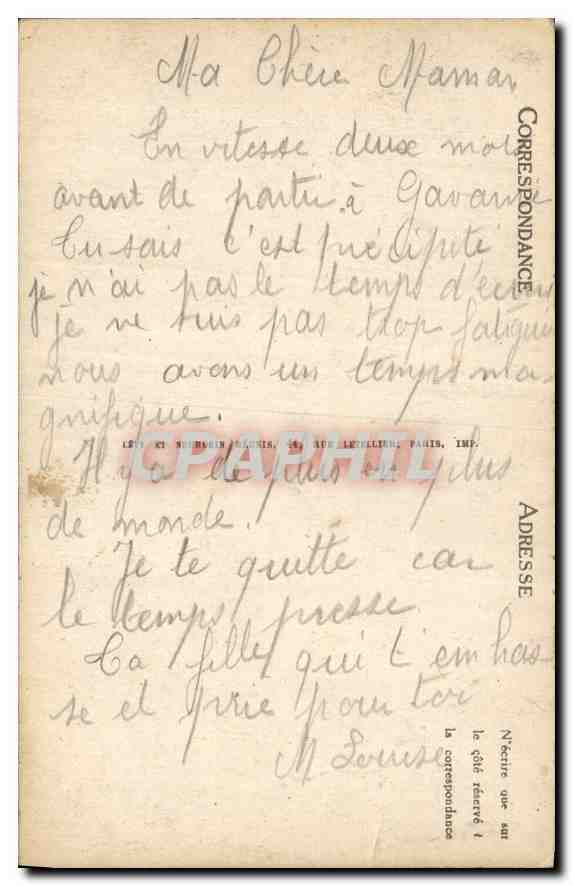 Ma Chère Maman
En vitesse deux mots
avant de partir à Gavarnie
Tu sais c'est précipité
je n'ai pas le temps d'écrire
je ne suis pas trop fatiguée
nous avons un temps ma-
gnifique.
LÉVY ET NEURDEIN RÉUNIS, 44, RUE LETELLIER, PARIS, IMP.
CPAPHIL
Il y a de plus en plus
de monde.
Je te quitte car
le temps presse
Ta fille qui t'embras-
se et prie pour toi
M Louise
CORRESPONDANCE
ADRESSE
N'écrire que sur
le côté réservé à
la correspondance